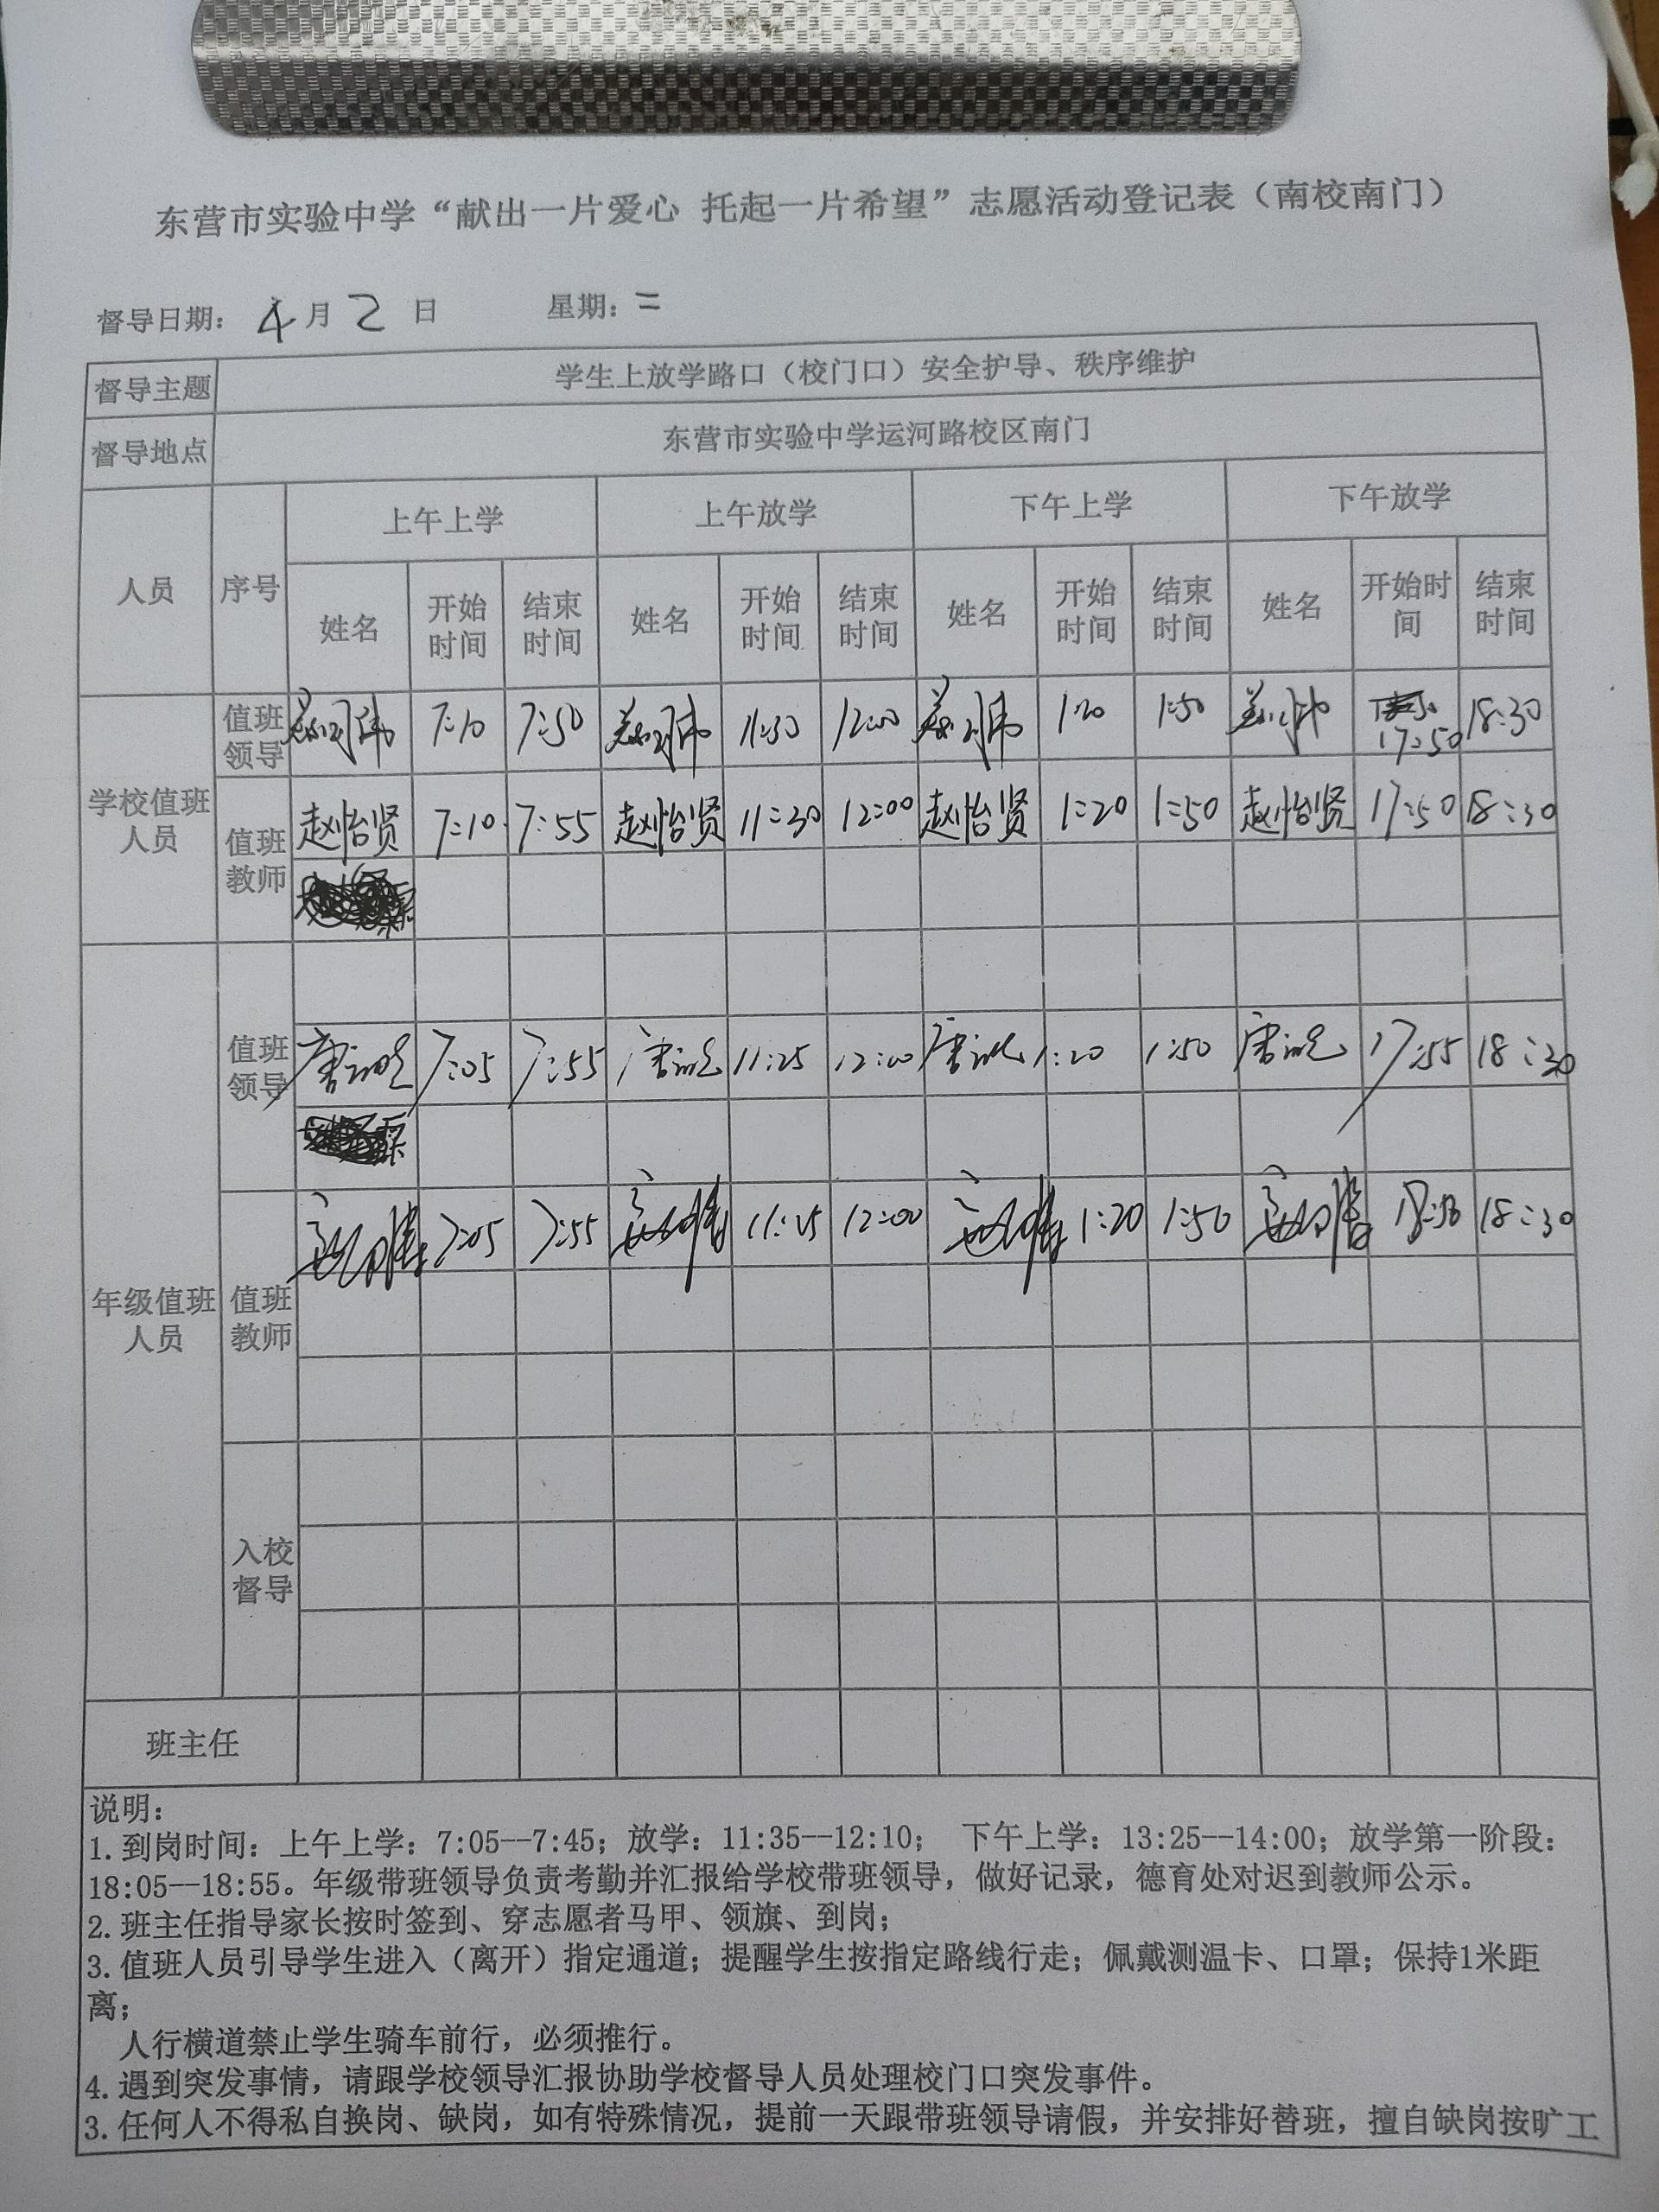 东营市实验中学“献出一片爱心 托起一片希望”志愿活动登记表（南校南门）
督导日期： 4 月 2 日 星期：二
督导主题 学生上放学路口（校门口）安全护导、秩序维护
督导地点 东营市实验中学运河路校区南门
人员 序号 上午上学 上午放学 下午上学 下午放学
姓名 开始时间 结束时间 姓名 开始时间 结束时间 姓名 开始时间 结束时间 姓名 开始时间 结束时间
学校值班人员
值班领导 7:10 7:50 11:30 12:00 1:20 1:50 17:50 18:30
值班教师 赵怡贤 7:10 7:55 赵怡贤 11:30 12:00 赵怡贤 1:20 1:50 赵怡贤 17:50 18:30
年级值班人员
值班领导 7:05 7:55 11:25 12:00 1:20 1:50 17:55 18:30
值班教师 7:05 7:55 11:25 12:00 1:20 1:50 18:30
入校督导
班主任
说明：
1.到岗时间：上午上学：7:05--7:45；放学：11:35--12:10； 下午上学：13:25--14:00；放学第一阶段：
18:05--18:55。年级带班领导负责考勤并汇报给学校带班领导，做好记录，德育处对迟到教师公示。
2.班主任指导家长按时签到、穿志愿者马甲、领旗、到岗；
3.值班人员引导学生进入（离开）指定通道；提醒学生按指定路线行走；佩戴测温卡、口罩；保持1米距
离；
人行横道禁止学生骑车前行，必须推行。
4.遇到突发事情，请跟学校领导汇报协助学校督导人员处理校门口突发事件。
3.任何人不得私自换岗、缺岗，如有特殊情况，提前一天跟带班领导请假，并安排好替班，擅自缺岗按旷工